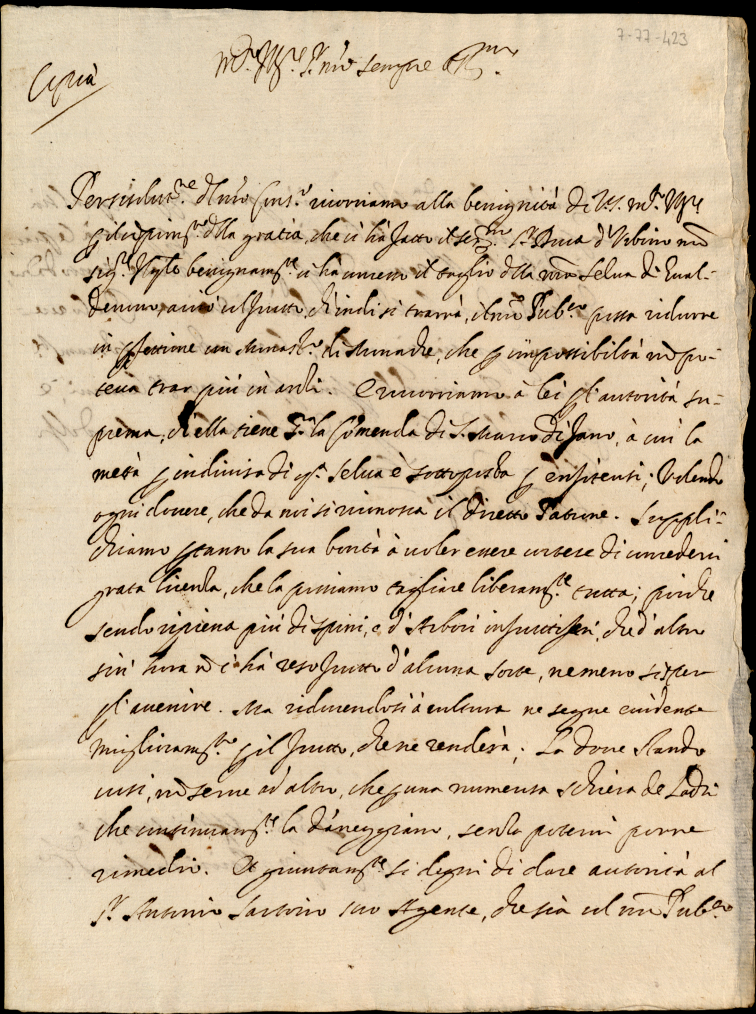 7-77-423
Copia
M.to Ill.re S.r mio sempre
ricorriamo alla benignità di V.S. m.to Ill.re
della gratia, che ci ha fatto il ser.mo S.r Duca d'Urbino nro
sig.re benignam.te ci ha concesso il taglio della nra selva di
acciò col frutto, ch'indi si trarrà, il nro Pub.co possa ridurre
in p̱fettione un Monast.o di Monache, che p̱ impossibiltà nō po-
teva trar più inanti. E ricorriamo à lei p̱ l'autorità su-
prema, ch'ella tiene sop.a la Comenda di S. Marco di Jano, à cui la
metà p̱ indivisa di q.ta selva è sottoposta p̱ enfiteusi; Volendo
ogni dovere, che da noi si riconosca il diretto Patrone. Suppli-
chiamo p̱tanto la sua bontà à voler essere cortese di concederci
grata licenza, che la possiamo tagliare liberam.te tutta; poiche
sendo ripiena più di spini, e d'Arbori infruttiferi, che d'altro
sin' hora nō ci hà reso frutto d'alcuna sorte, ne meno si spera
p̱ l'avenire. Ma riducendosi à cultura ne segue evidente
miglioram.to p̱ il frutto, che ne renderà; La dove stando
cosi, nō serve ad altro, che p̱ una numerosa schiera de Ladri
che continuam.te la daneggiano, senza potervi porre
rimedio. Et giuntam.te si degni di dare autorità al
S.r Antonio Sartorio suo Agente, che sia col nro Pub.co